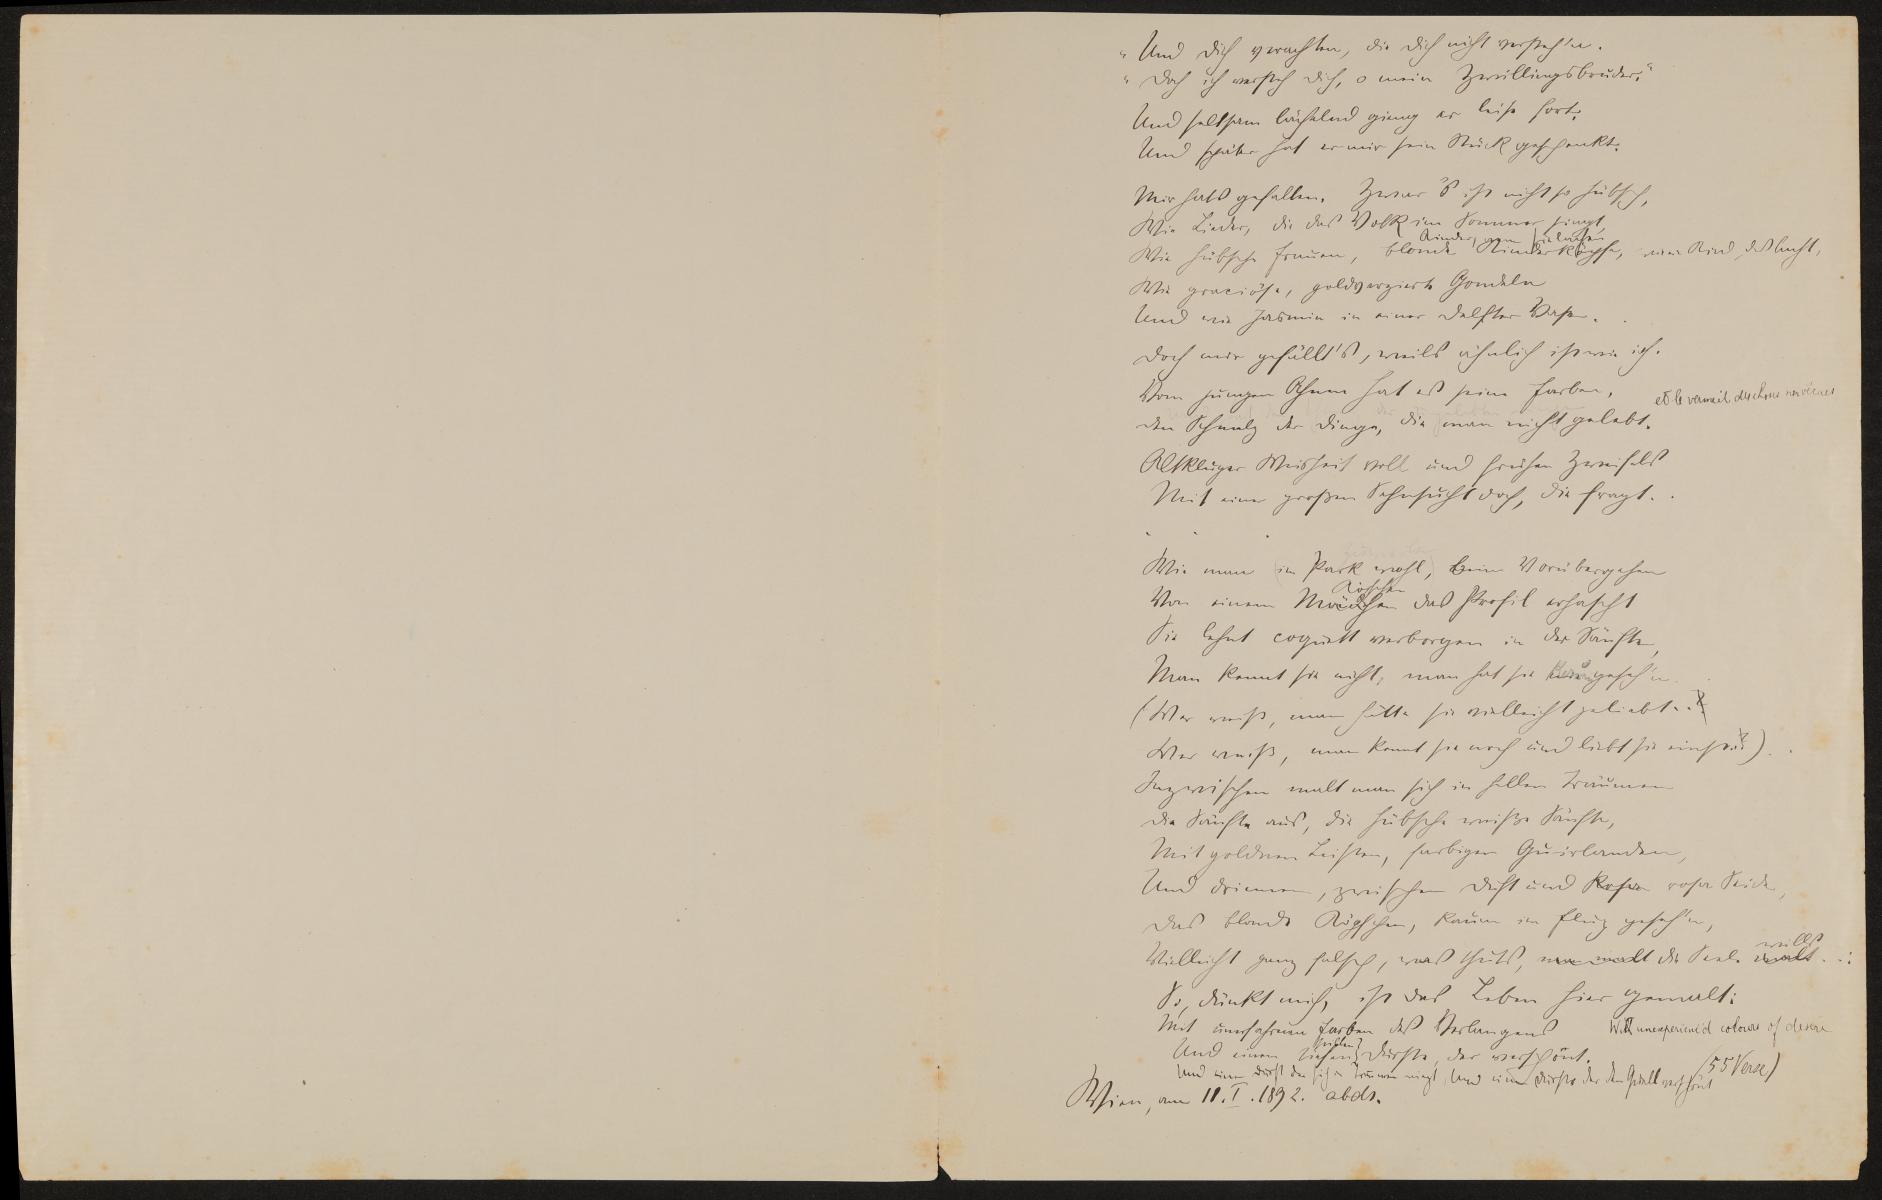 „Und dich verachten, die dich nicht versteh'n.
„Doch ich versteh dich, o mein Zwillingsbruder.“
Und seltsam lächelnd gieng er leise fort.
Und später hat er mir sein Stück geschenkt.
Mir hats gefallen. Zwar 's ist nicht so hübsch,
Wie Lieder, die das Volk im Sommer singt,
Kinder, wenn sie lachen
Wie hübsche Frauen, blonde Kinderköpfe, wie ein Kind, das lacht,
Wie graciöse, goldverzierte Gondeln
Und wie Jasmin in einer Delfter Vase.
Doch mir gefällt's, weils ähnlich ist wie ich.
Vom jungen Ahnen hat es seine Farben,
et le vermeil des choses
den Schmelz der Dinge, die man nicht gelebt.
Altkluger Weisheit voll und frühen Zweifels
Mit einer großen Sehnsucht doch, die fragt..
. . .
Wie man (im Park wohl), beim Vorübergehen
Köpfchen
Von einem Mädchen das Profil erhascht
Sie lehnt coquett verborgen in der Sänfte,
Man kennt sie nicht, man hat sie kaum geseh'n..
(Wer weiß, man hätte sie vielleicht geliebt..
Wer weiß, man kennt sie noch und liebt sie einst..)..
Inzwischen malt man sich in hellen Träumen
die Sänfte aus, die hübsche weiße Sänfte,
Mit goldnen Leisten, farbigen Guirlanden,
Und drinnen, zwischen Duft und Rosen rosa Seide,
das blonde Köpfchen, kaum im Flug geseh'n,
willst
Vielleicht ganz falsch, was thuts, man malt die Seele malt..:
So, dünkt mich, ist das Leben hier gemalt:
Mit unerfahrnen Farben des Verlangens With unexperienced colours of desire
stillen?
Und einem tiefen Durste, der verschönt. (55 Verse)
Und einem Durst der sich in Träumen wiegt, Und einem Durste der den Quell verschönt
Wien, am 11. I. 1892. abds.